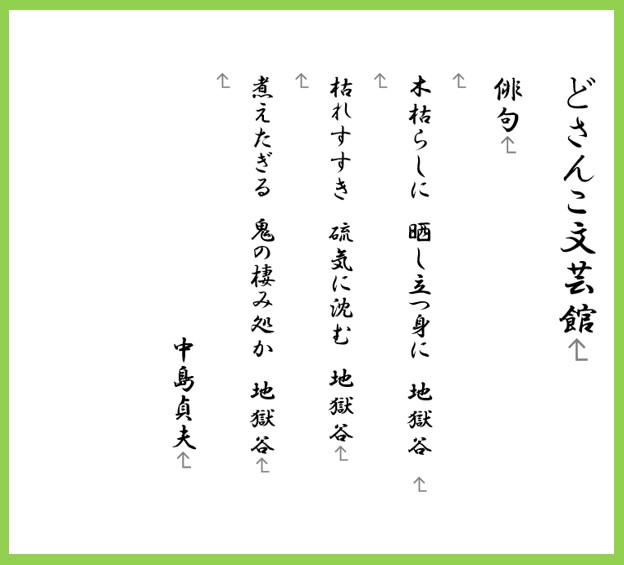 どさんこ文芸館
俳句
木枯らしに　晒し立つ身に　地獄谷
枯れすすき　硫気に沈む　地獄谷
煮えたぎる　鬼の棲み処か　地獄谷
中島貞夫